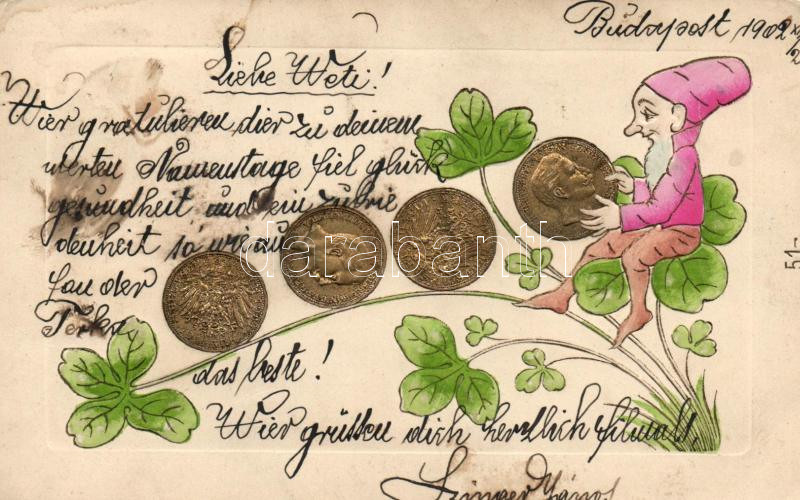 Budapest 1902 XI/2
Liebe Weti!
Wier gratulieren dier zu deinem
werten Namenstage fiel glück
gesundheit und ein zufrie
denheit so wie auch
fon der
Terka
das beste!
Wier grüssen dich herzlich filmall,
Szinger János
darabanth
51-